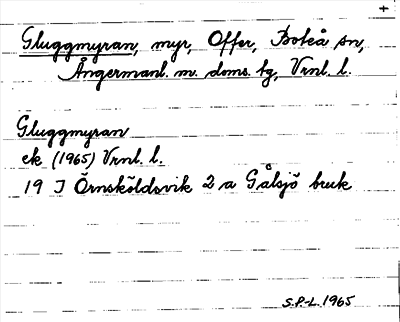 +
Gluggmyran, myr, Offer, Boteå sn,
Ångermanl. m. doms. tg, Vrnl. l.
Gluggmyran
ek (1965) Vrnl. l.
19 I Örnsköldsvik 2 a Gålsjö bruk
S.P-L. 1965